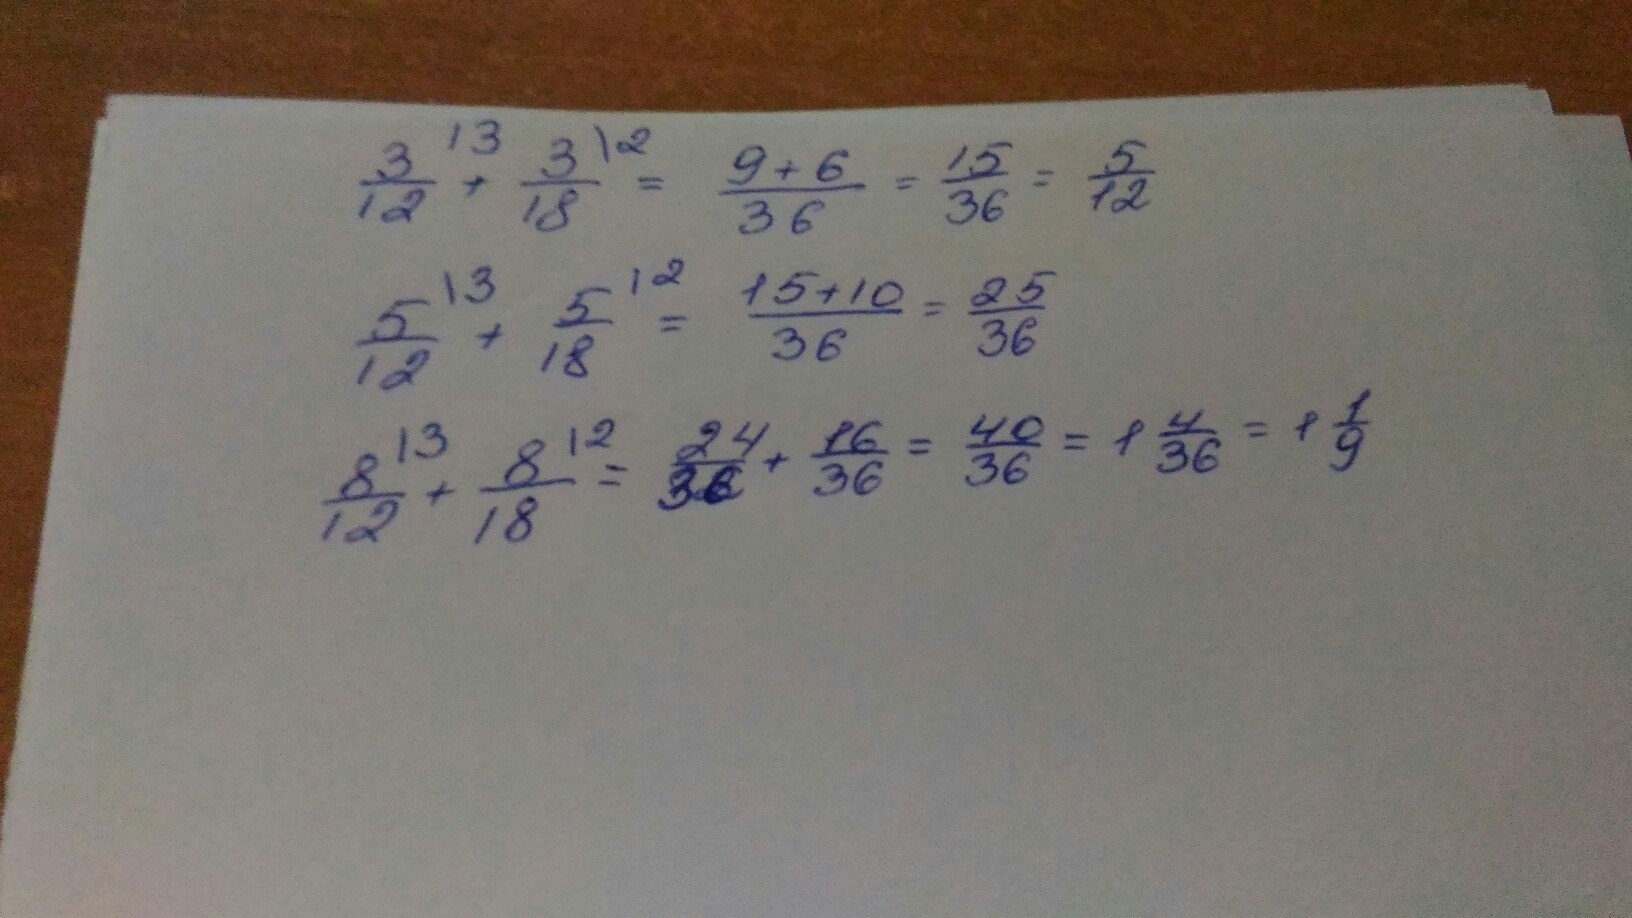 3/12 \3 + 3/18 \2 = 9+6/36 = 15/36 = 5/12
5/12 \3 + 5/18 \2 = 15+10/36 = 25/36
8/12 \3 + 8/18 \2 = 24/36 + 16/36 = 40/36 = 1 4/36 = 1 1/9